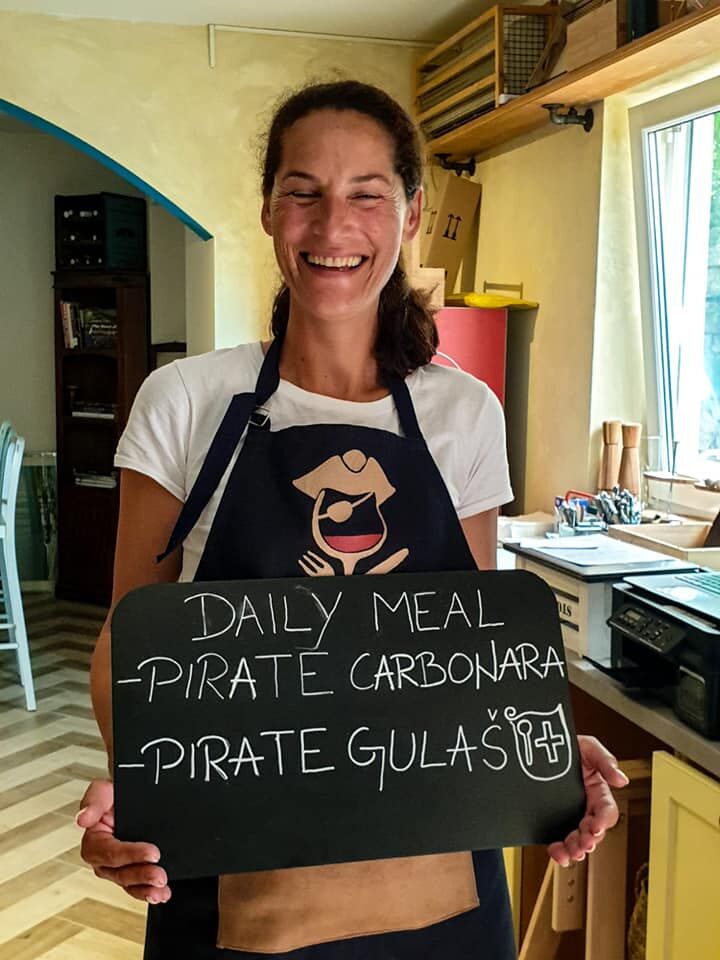 DAILY MEAL
-PIRATE CARBONARA
-PIRATE GULAŠ